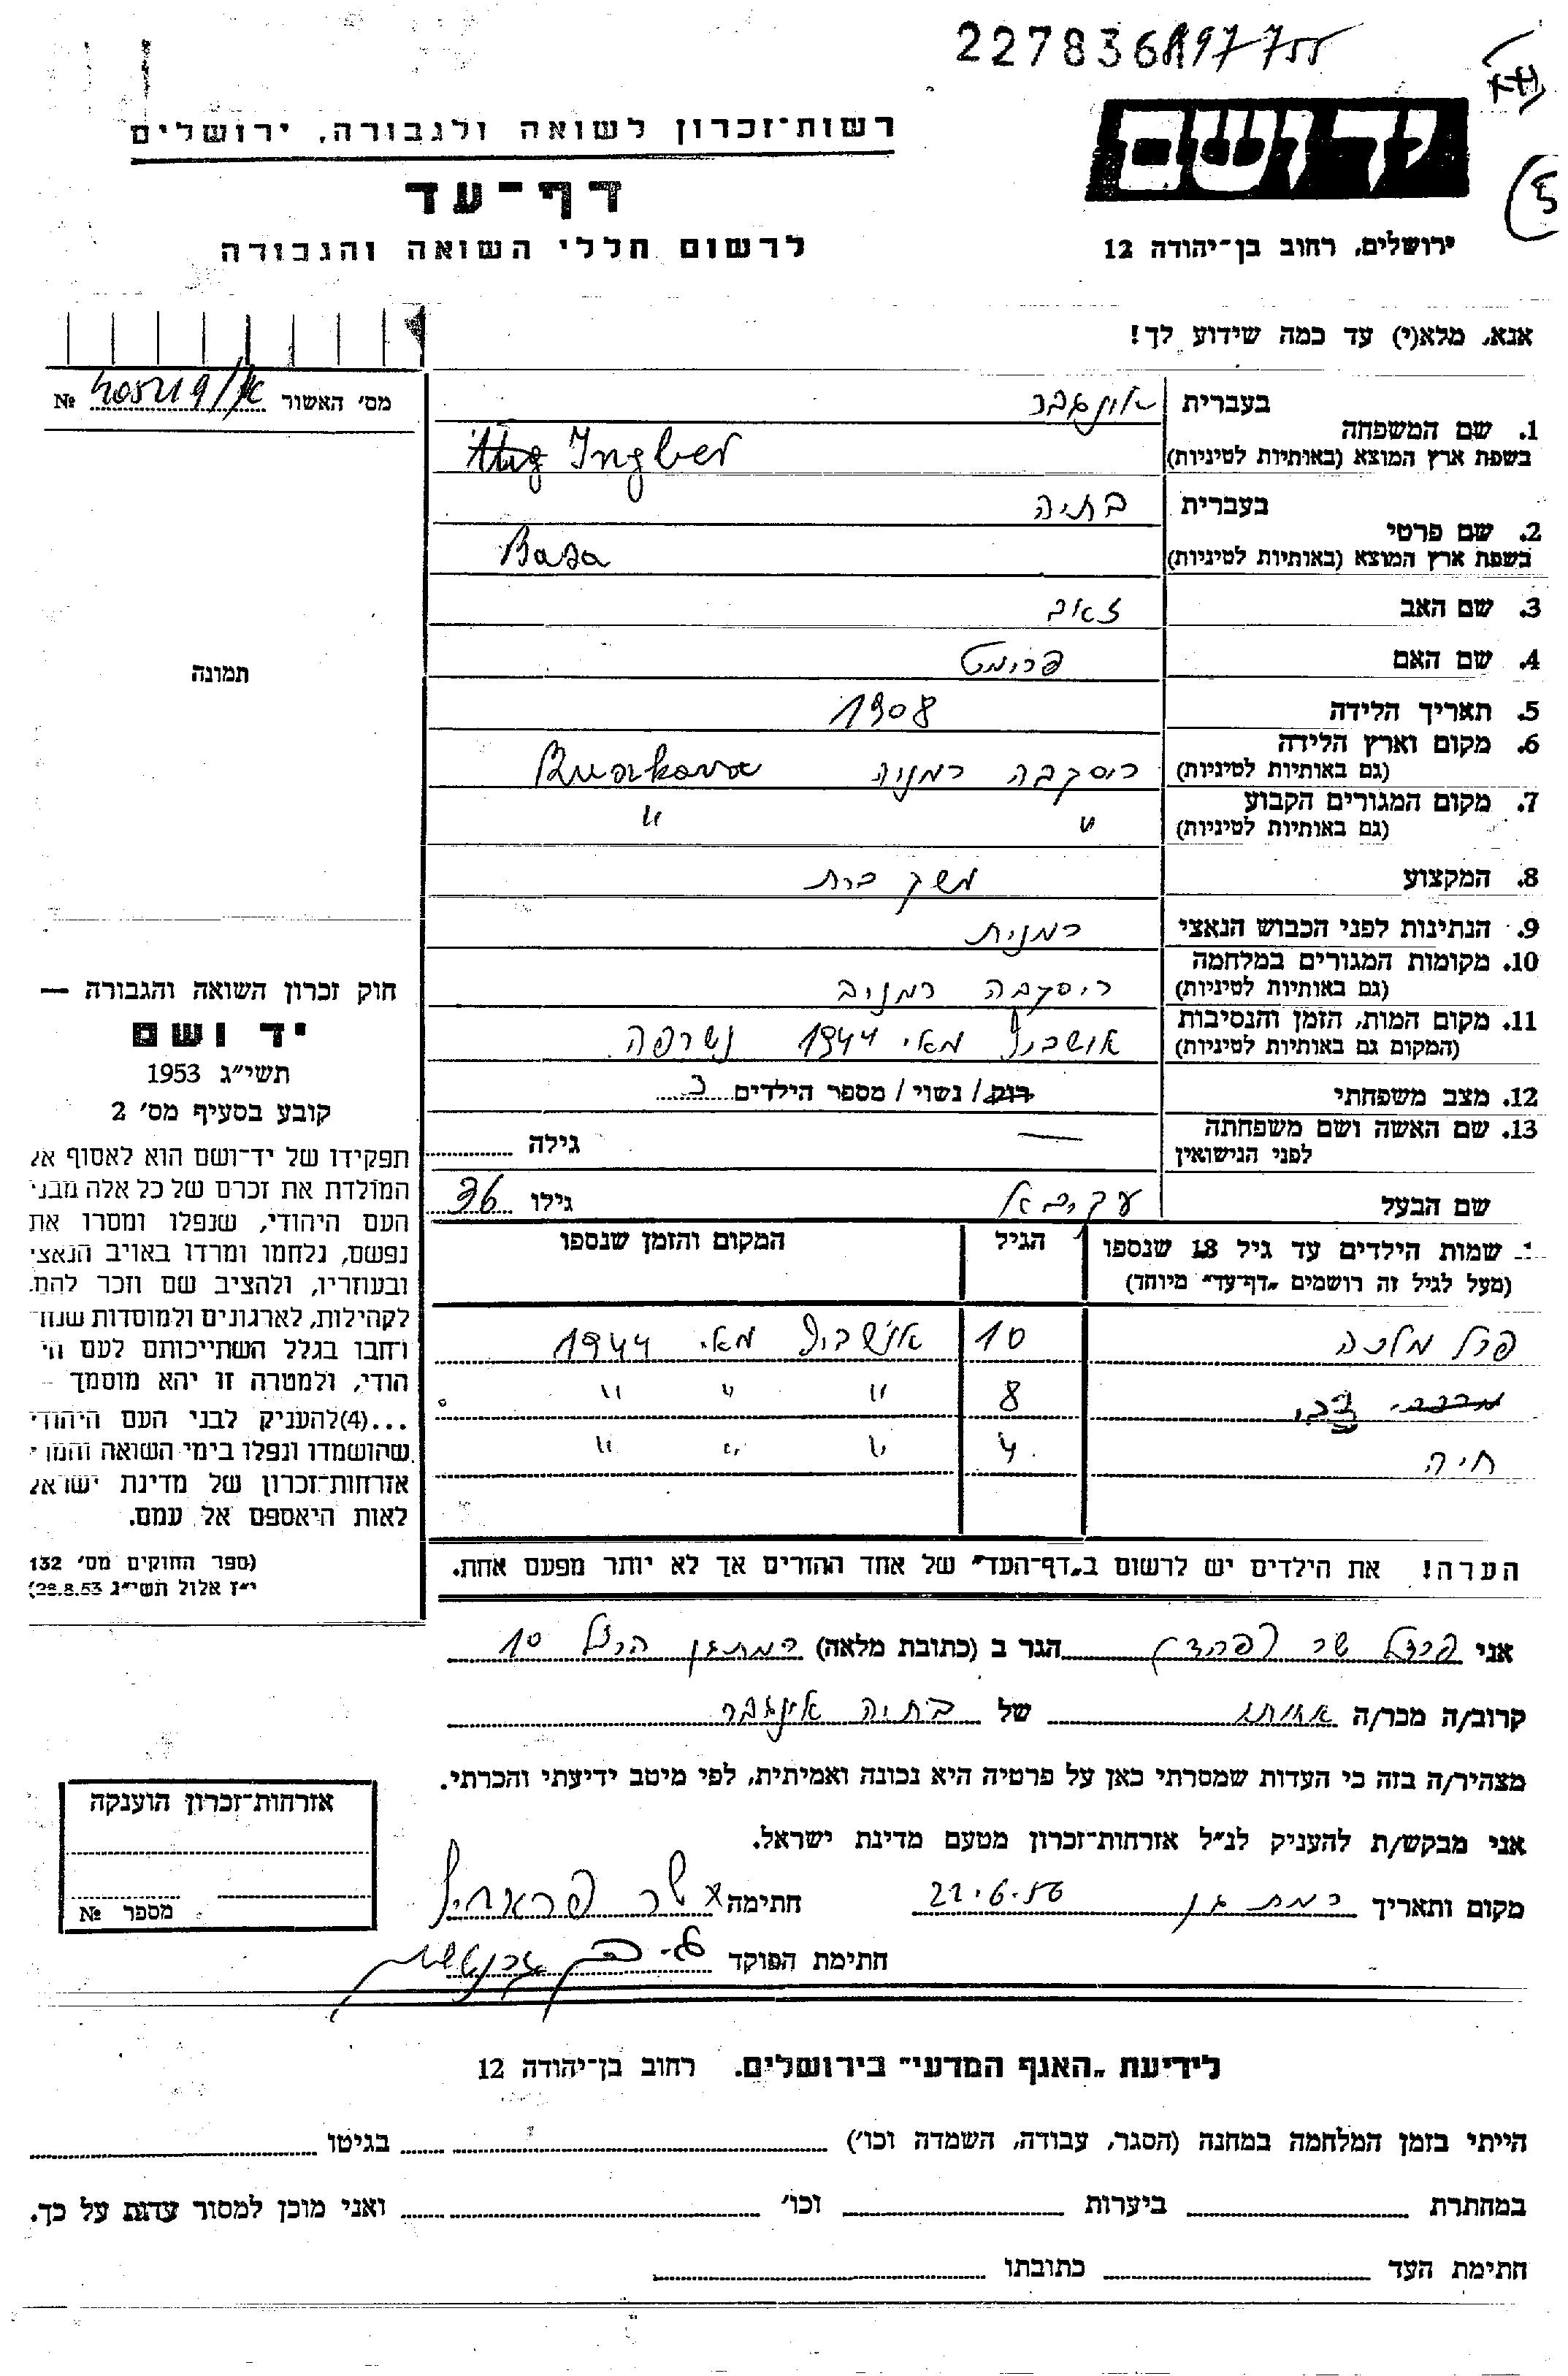 227836 197755
רשות־זכרון לשואה ולגבורה, ירושלים
יד ושם
דף־עד
לרשום חללי השואה והגבורה
ירושלים, רחוב בן־יהודה 12
5
אנא, מלא(י) עד כמה שידוע לך!
מס׳ האשור № 405219/
1. שם המשפחה
בעברית אינגבר
בשפת ארץ המוצא (באותיות לטיניות) Ingber
2. שם פרטי
בעברית בתיה
בשפת ארץ המוצא (באותיות לטיניות) Basa
3. שם האב זאב
4. שם האם פרומט
תמונה
5. תאריך הלידה 1908
6. מקום וארץ הלידה
(גם באותיות לטיניות) רוסקבה רמניה Ruskova
7. מקום המגורים הקבוע
(גם באותיות לטיניות) " "
8. המקצוע משק ברת
9. הנתינות לפני הכבוש הנאצי רמנית
10. מקומות המגורים במלחמה
(גם באותיות לטיניות) רוסקבה רמניה
11. מקום המות, הזמן והנסיבות
(המקום גם באותיות לטיניות) אושביץ מאי 1944 נשרפה
12. מצב משפחתי רוק / נשוי / מספר הילדים 3
13. שם האשה ושם משפחתה
לפני הנישואין — גילה
שם הבעל עקיבא גילו 36
שמות הילדים עד גיל 18 שנספו הגיל המקום והזמן שנספו
(מעל לגיל זה רושמים „דף־עד״ מיוחד)
פרל מלכה 10 אושביץ מאי 1944
צבי 8 " " "
חיה 4 " " "
הערה! את הילדים יש לרשום ב„דף־העד״ של אחד ההורים אך לא יותר מפעם אחת.
חוק זכרון השואה והגבורה —
יד ושם
תשי״ג 1953
קובע בסעיף מס׳ 2
תפקידו של יד־ושם הוא לאסוף אל
המולדת את זכרם של כל אלה מבני
העם היהודי, שנפלו ומסרו את
נפשם, נלחמו ומרדו באויב הנאצי
ובעוזריו, ולהציב שם וזכר להם,
לקהילות, לארגונים ולמוסדות שנח־
רחבו בגלל השתייכותם לעם הי־
הודי, ולמטרה זו יהא מוסמך —
...(4) להעניק לבני העם היהודי
שהושמדו ונפלו בימי השואה והמרי
אזרחות־זכרון של מדינת ישראל
לאות היאספם אל עמם.
(ספר החוקים מס׳ 132
י״ז אלול תשי״ג 28.8.53)
אני שר הגר ב (כתובת מלאה) רמת גן הרצל 10
קרוב/ה מכר/ה אחותו של בתיה אינגבר
מצהיר/ה בזה כי העדות שמסרתי כאן על פרטיה היא נכונה ואמיתית, לפי מיטב ידיעתי והכרתי.
אני מבקש/ת להעניק לנ״ל אזרחות־זכרון מטעם מדינת ישראל.
מקום ותאריך רמת גן 22.6.56 חתימה
חתימת הפוקד
אזרחות־זכרון הוענקה
מספר №
לידיעת „האגף המדעי״ בירושלים. רחוב בן־יהודה 12
הייתי בזמן המלחמה במחנה (הסגר, עבודה, השמדה וכו׳) בגיטו
במחתרת ביערות וכו׳ ואני מוכן למסור עדות על כך.
חתימת העד כתובתו